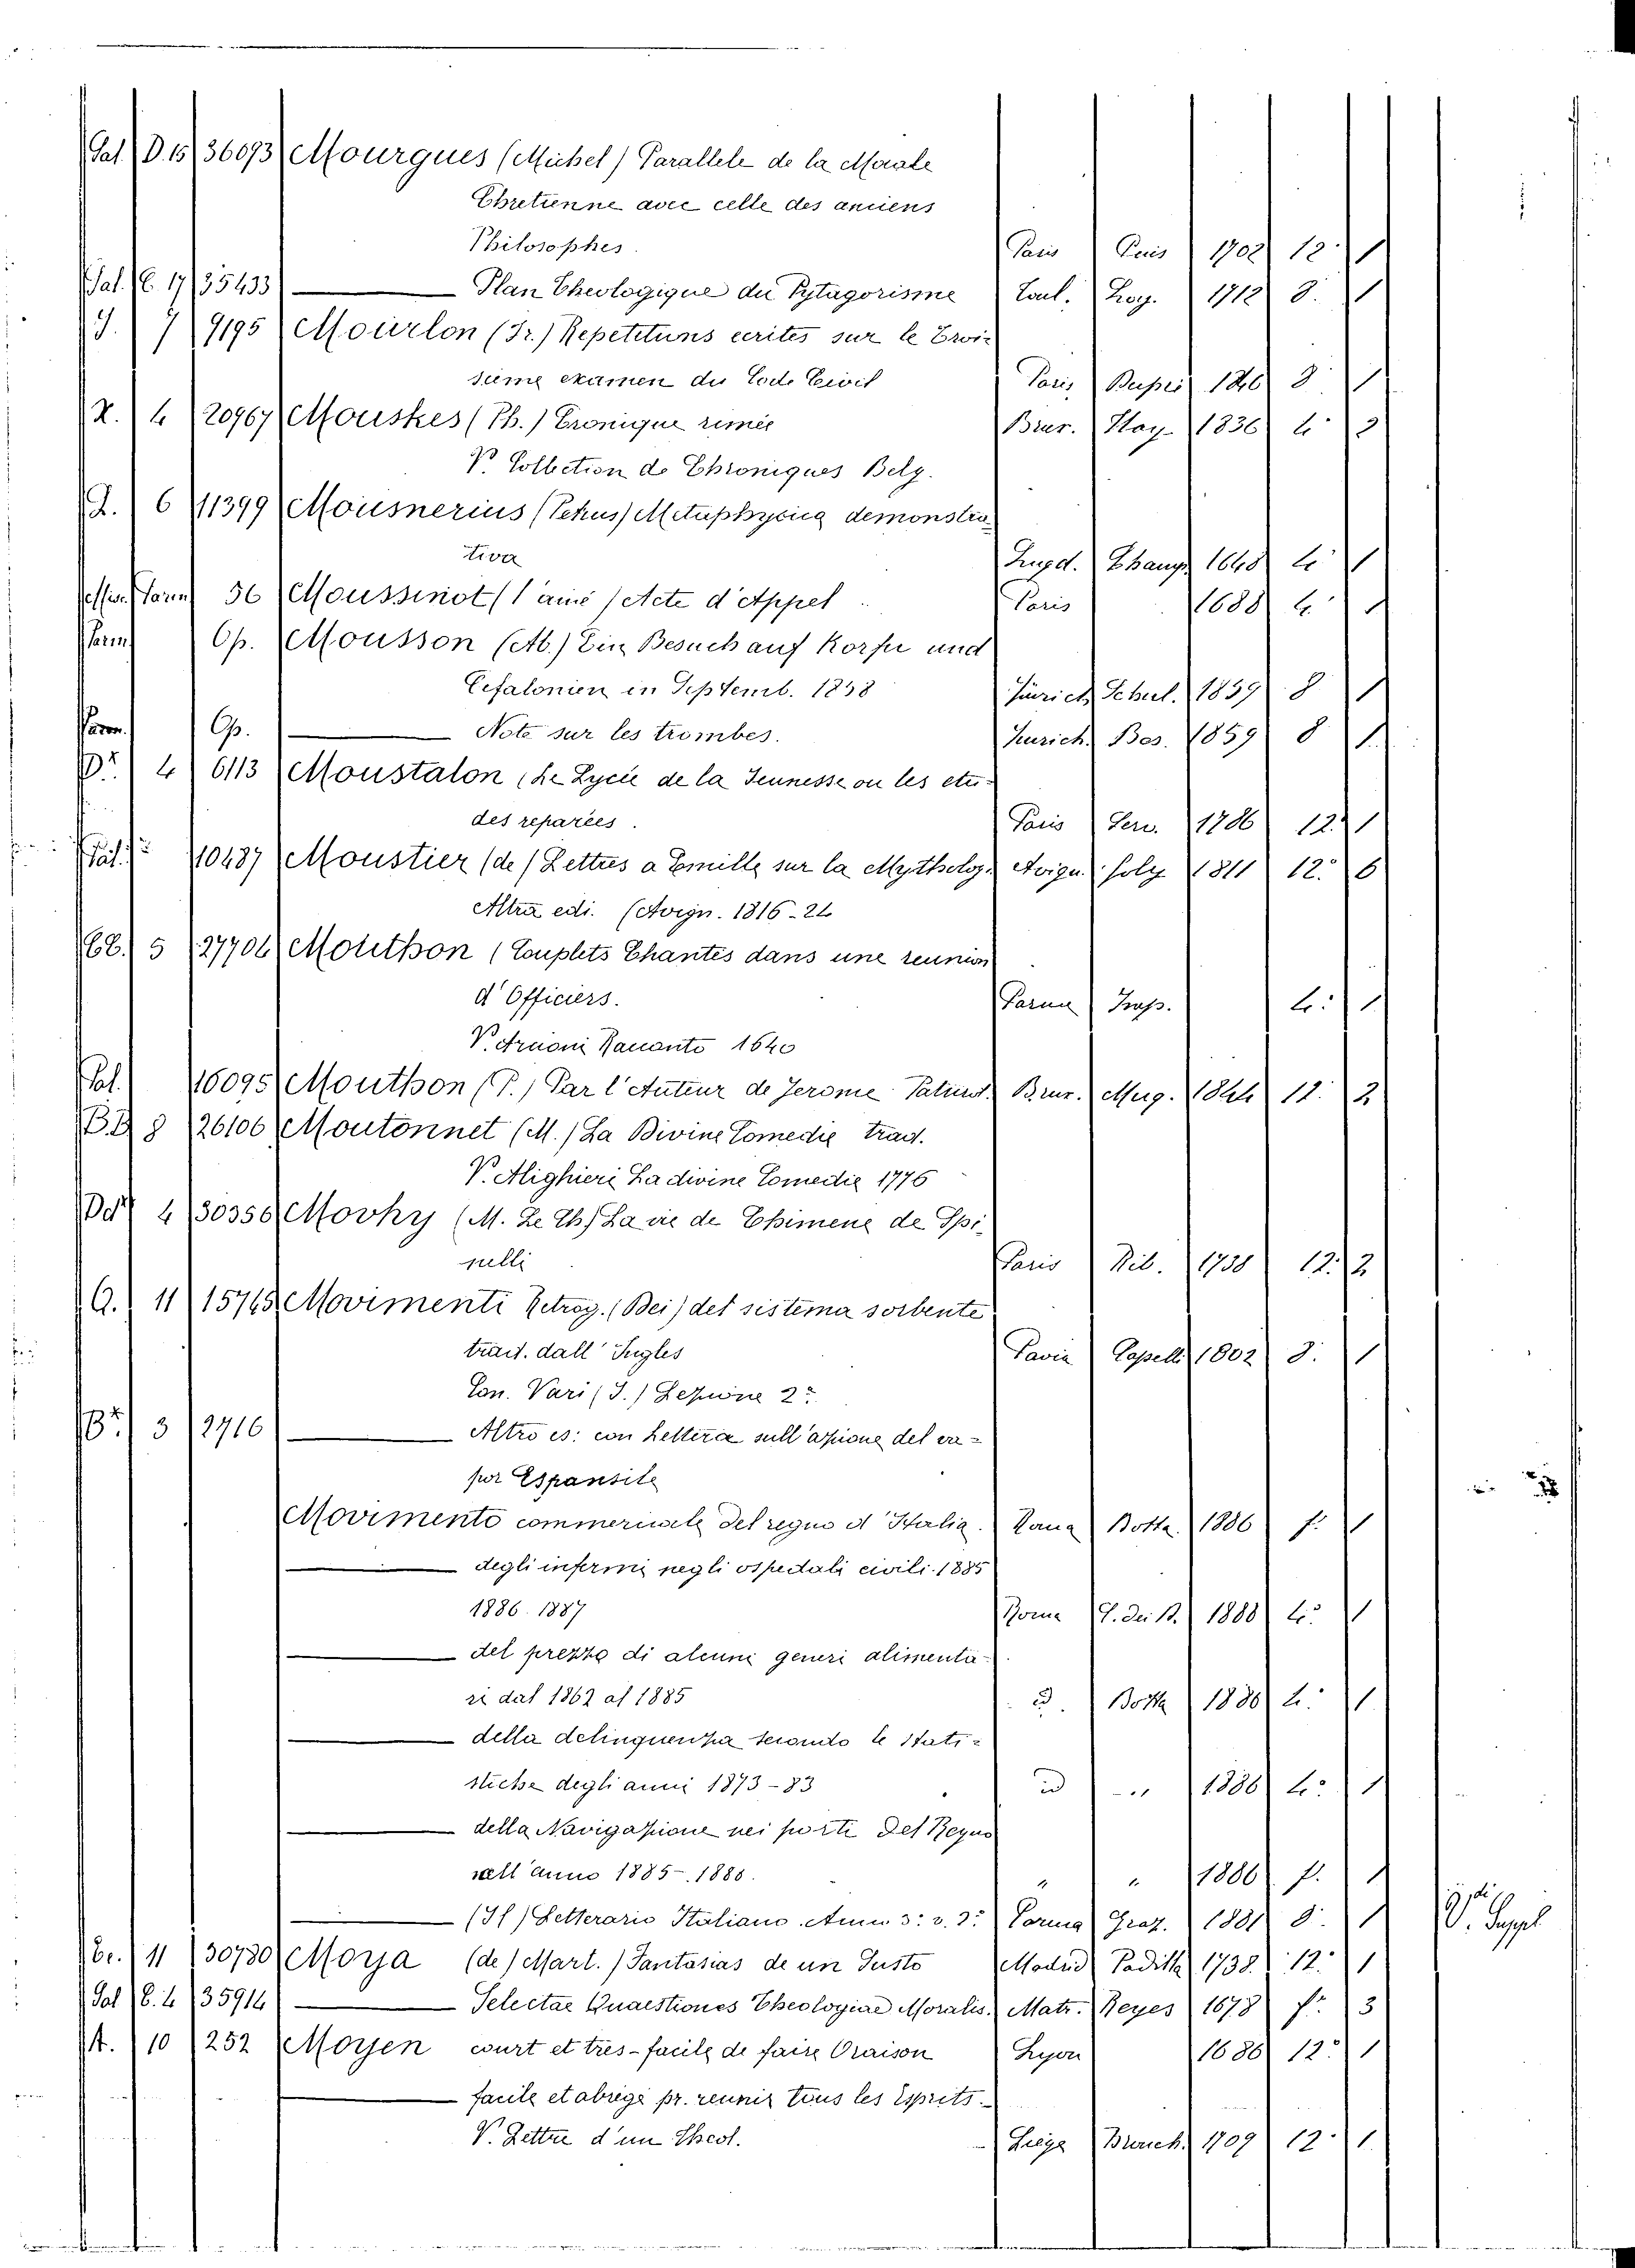 Sal. D. 15 36093 Mourgues (Michel) Parallele de la Morale
Chretienne avec celle des anciens
Philosophes. Paris Puis 1702 12. 1
Sal. C. 17 35433 Plan Theologique du Pytagorisme Toul. 1712 8. 1
J. 7 9195 Mourlon (Fr.) Repetitions ecrites sur le Troi-
sieme examen du Code Civil Paris 1846 8 1
X. 4 20967 Mouskes (Ph.) Cronique rimée Brux. Hay. 1836 4. 2
V. Collection de Chroniques Belg.
J. 6 11399 Mousnerius (Petrus) Metaphysica demonstra
tiva Lugd. Champ 1648 4. 1
Parm. 36 Moussinot (l'ainé) Acte d'Appel Paris 1688 4. 1
Parm. Op. Mousson (Alb.) Ein Besuch auf Korfu und
Cefalonien in Septemb. 1858 Zürich Schul. 1859 8 1
Parm. Op. Note sur les trombes. Zurich. 1859 8 1
4 6113 Moustalon (Le Lycée de la Jeunesse ou les etu-
des reparées. Paris Serv. 1786 12. 1
Pal. 10487 Moustier (de) Lettres a Emille sur la Mytholog. Avign. Joly 1811 12. 6
Altra edi. (Avign. 1816-24
BB. 5 27706 Mouthon (Couplets Chantés dans une reunion
d'Officiers. Parma Imp. 4. 1
V. 1640
Pal. 16095 Mouthon (P.) Par l'Auteur de Jerome Paturot. Brux. 1844 12. 2
BB 8 26106 Moutonnet (M.) La Divine Comedie trad.
V. Alighieri La divine Comedie 1776
Dd 4 30356 Movhy (M. Le Ch.) La vie de Chimene de Spi
nelli Paris Rib. 1738 12. 2
G. 11 15765 Movimenti Retrog. (Dei) del sistema sorbente
trad. dall' Ingles Pavia Capell. 1802 8. 1
Con. Vari (J.) Lezione 2ª.
3 2716 Altro es: con Lettera sull'azione del va-
por Espansile
Movimento commerciale del regno d'Italia. Roma Botta. 1886 f. 1
degli infermi negli ospedali civili 1885
1886. 1887 Roma T. dei B. 1888 4. 1
del prezzo di alcuni generi alimenta-
ri dal 1862 al 1885 id. Botta 1886 4. 1
della delinquenza secondo le stati-
stiche degli anni 1873-83 id " 1886 4. 1
della Navigazione nei porti del Regno
nell'anno 1885-1886. " " 1886 f. 1
(Il) Letterario Italiano. Anno 3: v. 3: Parma Graz. 1881 8. 1 V. Suppl
Cc. 11 30730 Moya (de) Mart.) Fantasias de un Susto Madrid Padilla 1738. 12. 1
Sal C. 4 35914 Selectae Quaestiones Theologiae Moralis. Matr. Reyes 1678 f. 3
A. 10 252 Moyen court et tres-facile de faire Oraison Lyon 1686 12. 1
facile et abregé pr. reunir tous les Esprits.
V. Lettre d'un Theol. Liege 1709 12. 1